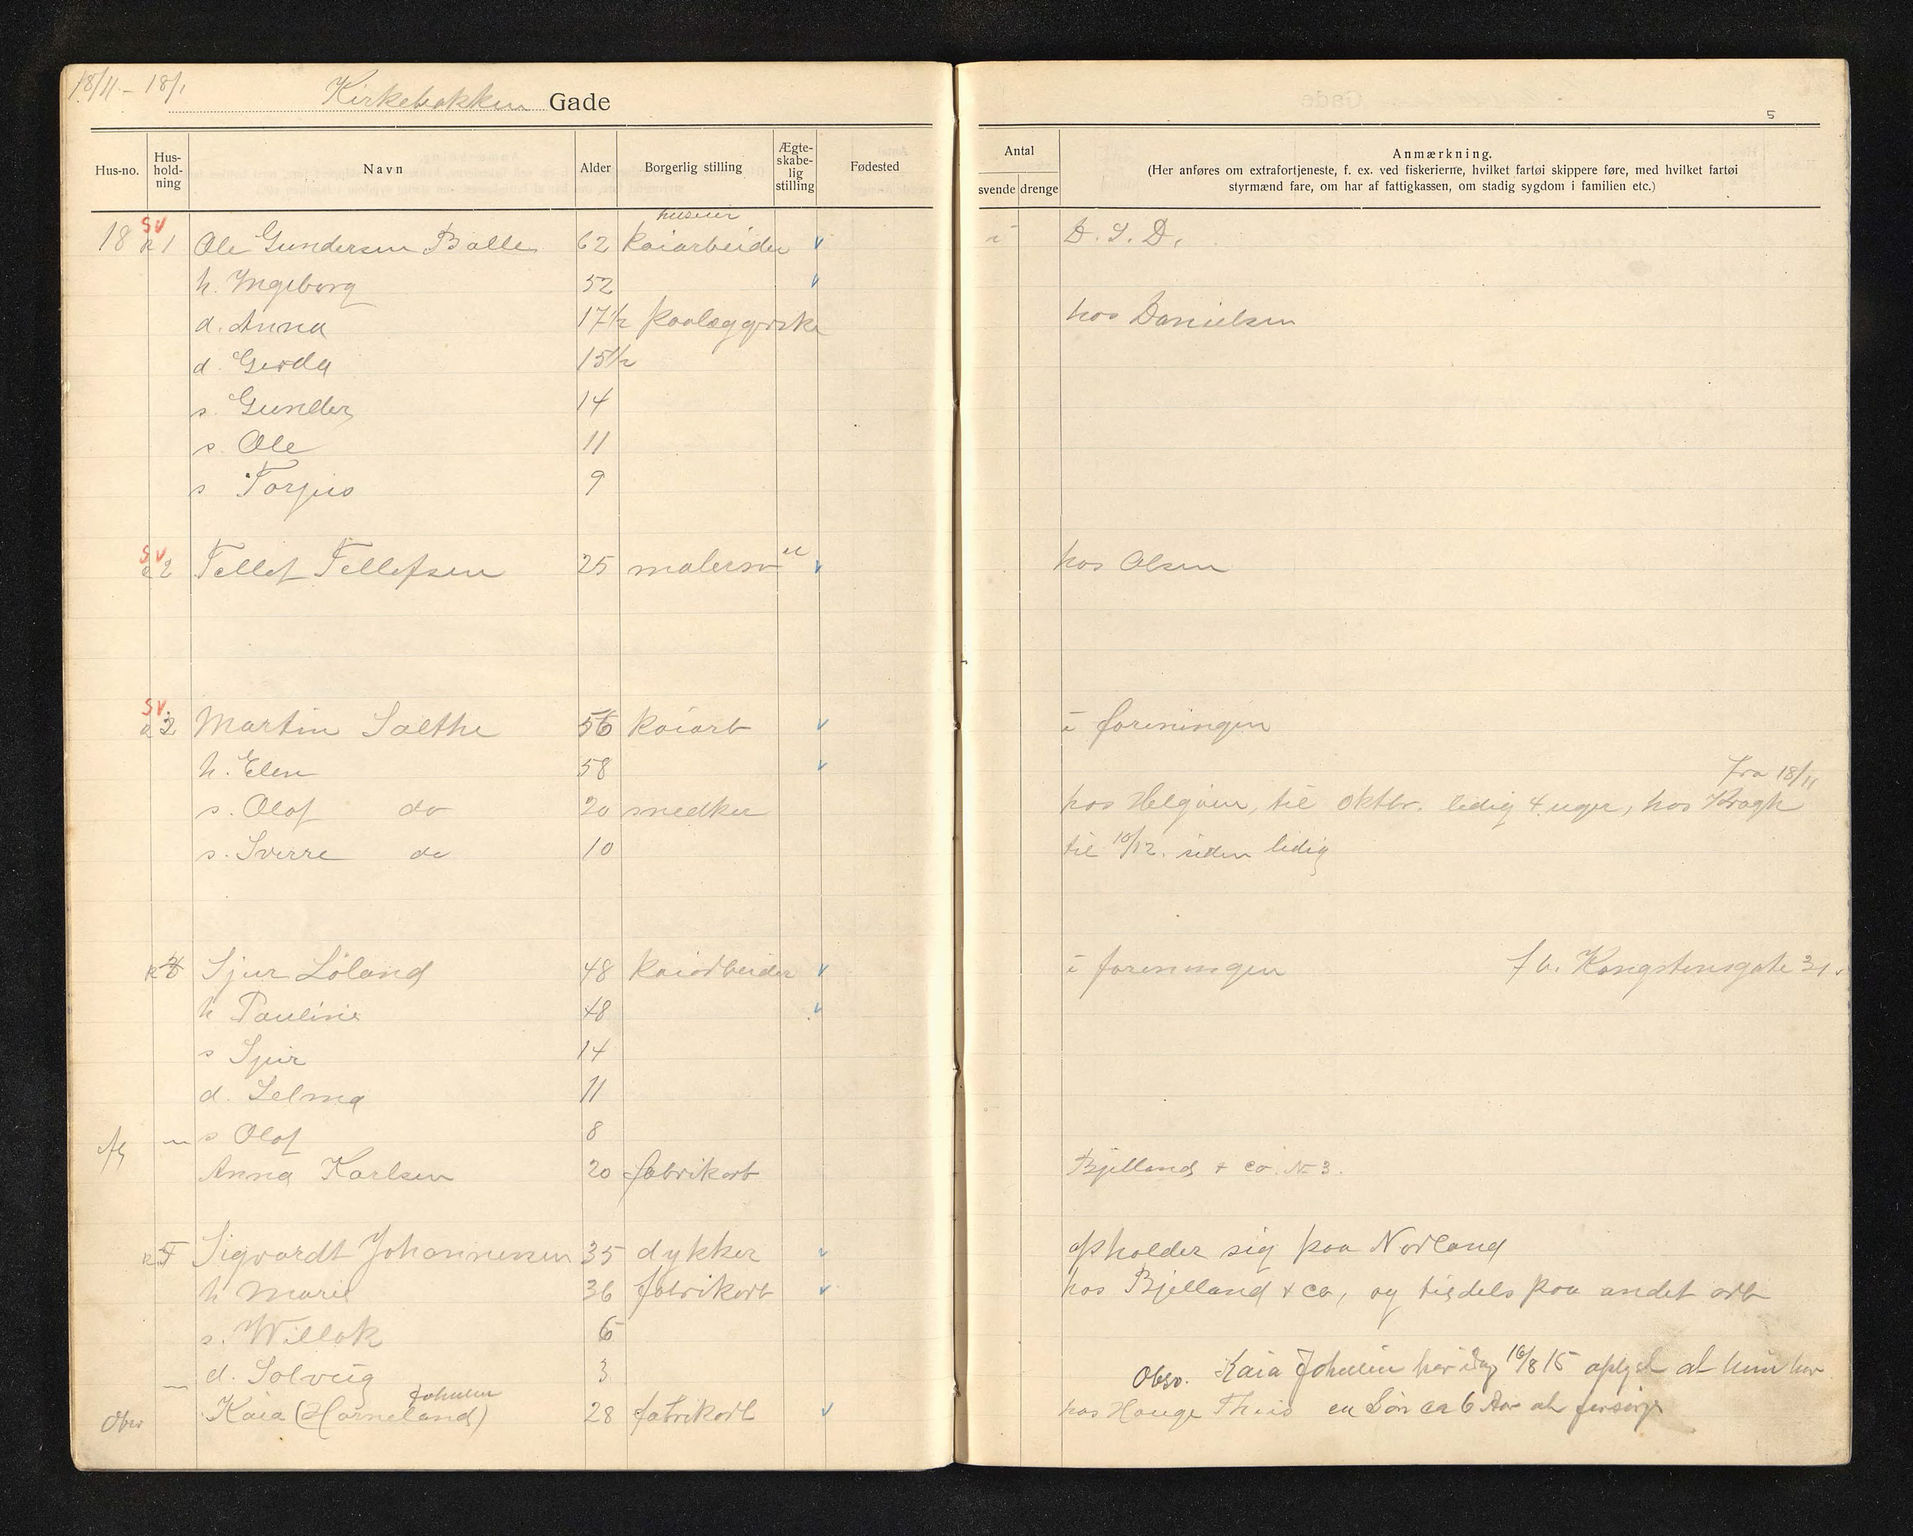 18/11 - 18/1
Kirkebakken Gade
5
Hus-no. Hus-hold-ning Navn Alder Borgerlig stilling Ægte-skabe-lig stilling Fødested
Antal
svende drenge
Anmærkning.
(Her anføres om extrafortjeneste, f. ex. ved fiskerierne, hvilket fartøi skippere føre, med hvilket fartøi
styrmænd fare, om har af fattigkassen, om stadig sygdom i familien etc.)
huseier
18 SV 1 Ole Gundersen Balle 62 kaiarbeider v i D. S. D.
h. Ingeborg 52 v
d. Anna 17½ paalæggerske hos Danielsen
d. Gerda 15½
s. Gunder 14
s. Ole 11
s Torjus 9
SV 2 Tellef Tellefsen 25 malersv u v hos Olsen
SV. 2 Martin Salthe 56 kaiarb v i foreningen
h. Elen 58 v
fra 18/11
s. Olaf do 20 snedker hos Helgøen, til oktbr. ledig 4 uger, hos Kragh
s. Sverre do 10 til 10/12. siden ledig
Sjur Løland 48 kaiarbeider v i foreningen f b. Kongstensgate 31.
h Pauline 48 v
s Sjur 14
d. Selma 11
s Olaf 8
Anna Karlsen 20 fabrikarb Bjelland + co. No 3.
Sigvardt Johannessen 35 dykker v opholder sig paa Norland
h Marie 36 fabrikarb v hos Bjelland + co, og tildels paa andet arb
s. Willok 6
d. Solveig 3
Obsv. Kaia Johnsen har idag 16/8 15 oplyst at hun har
Johnsen
Obsv Kaia (Horneland) 28 fabrikarb v hos Houge Thiis en Søn ca 6 Aar at forsørge